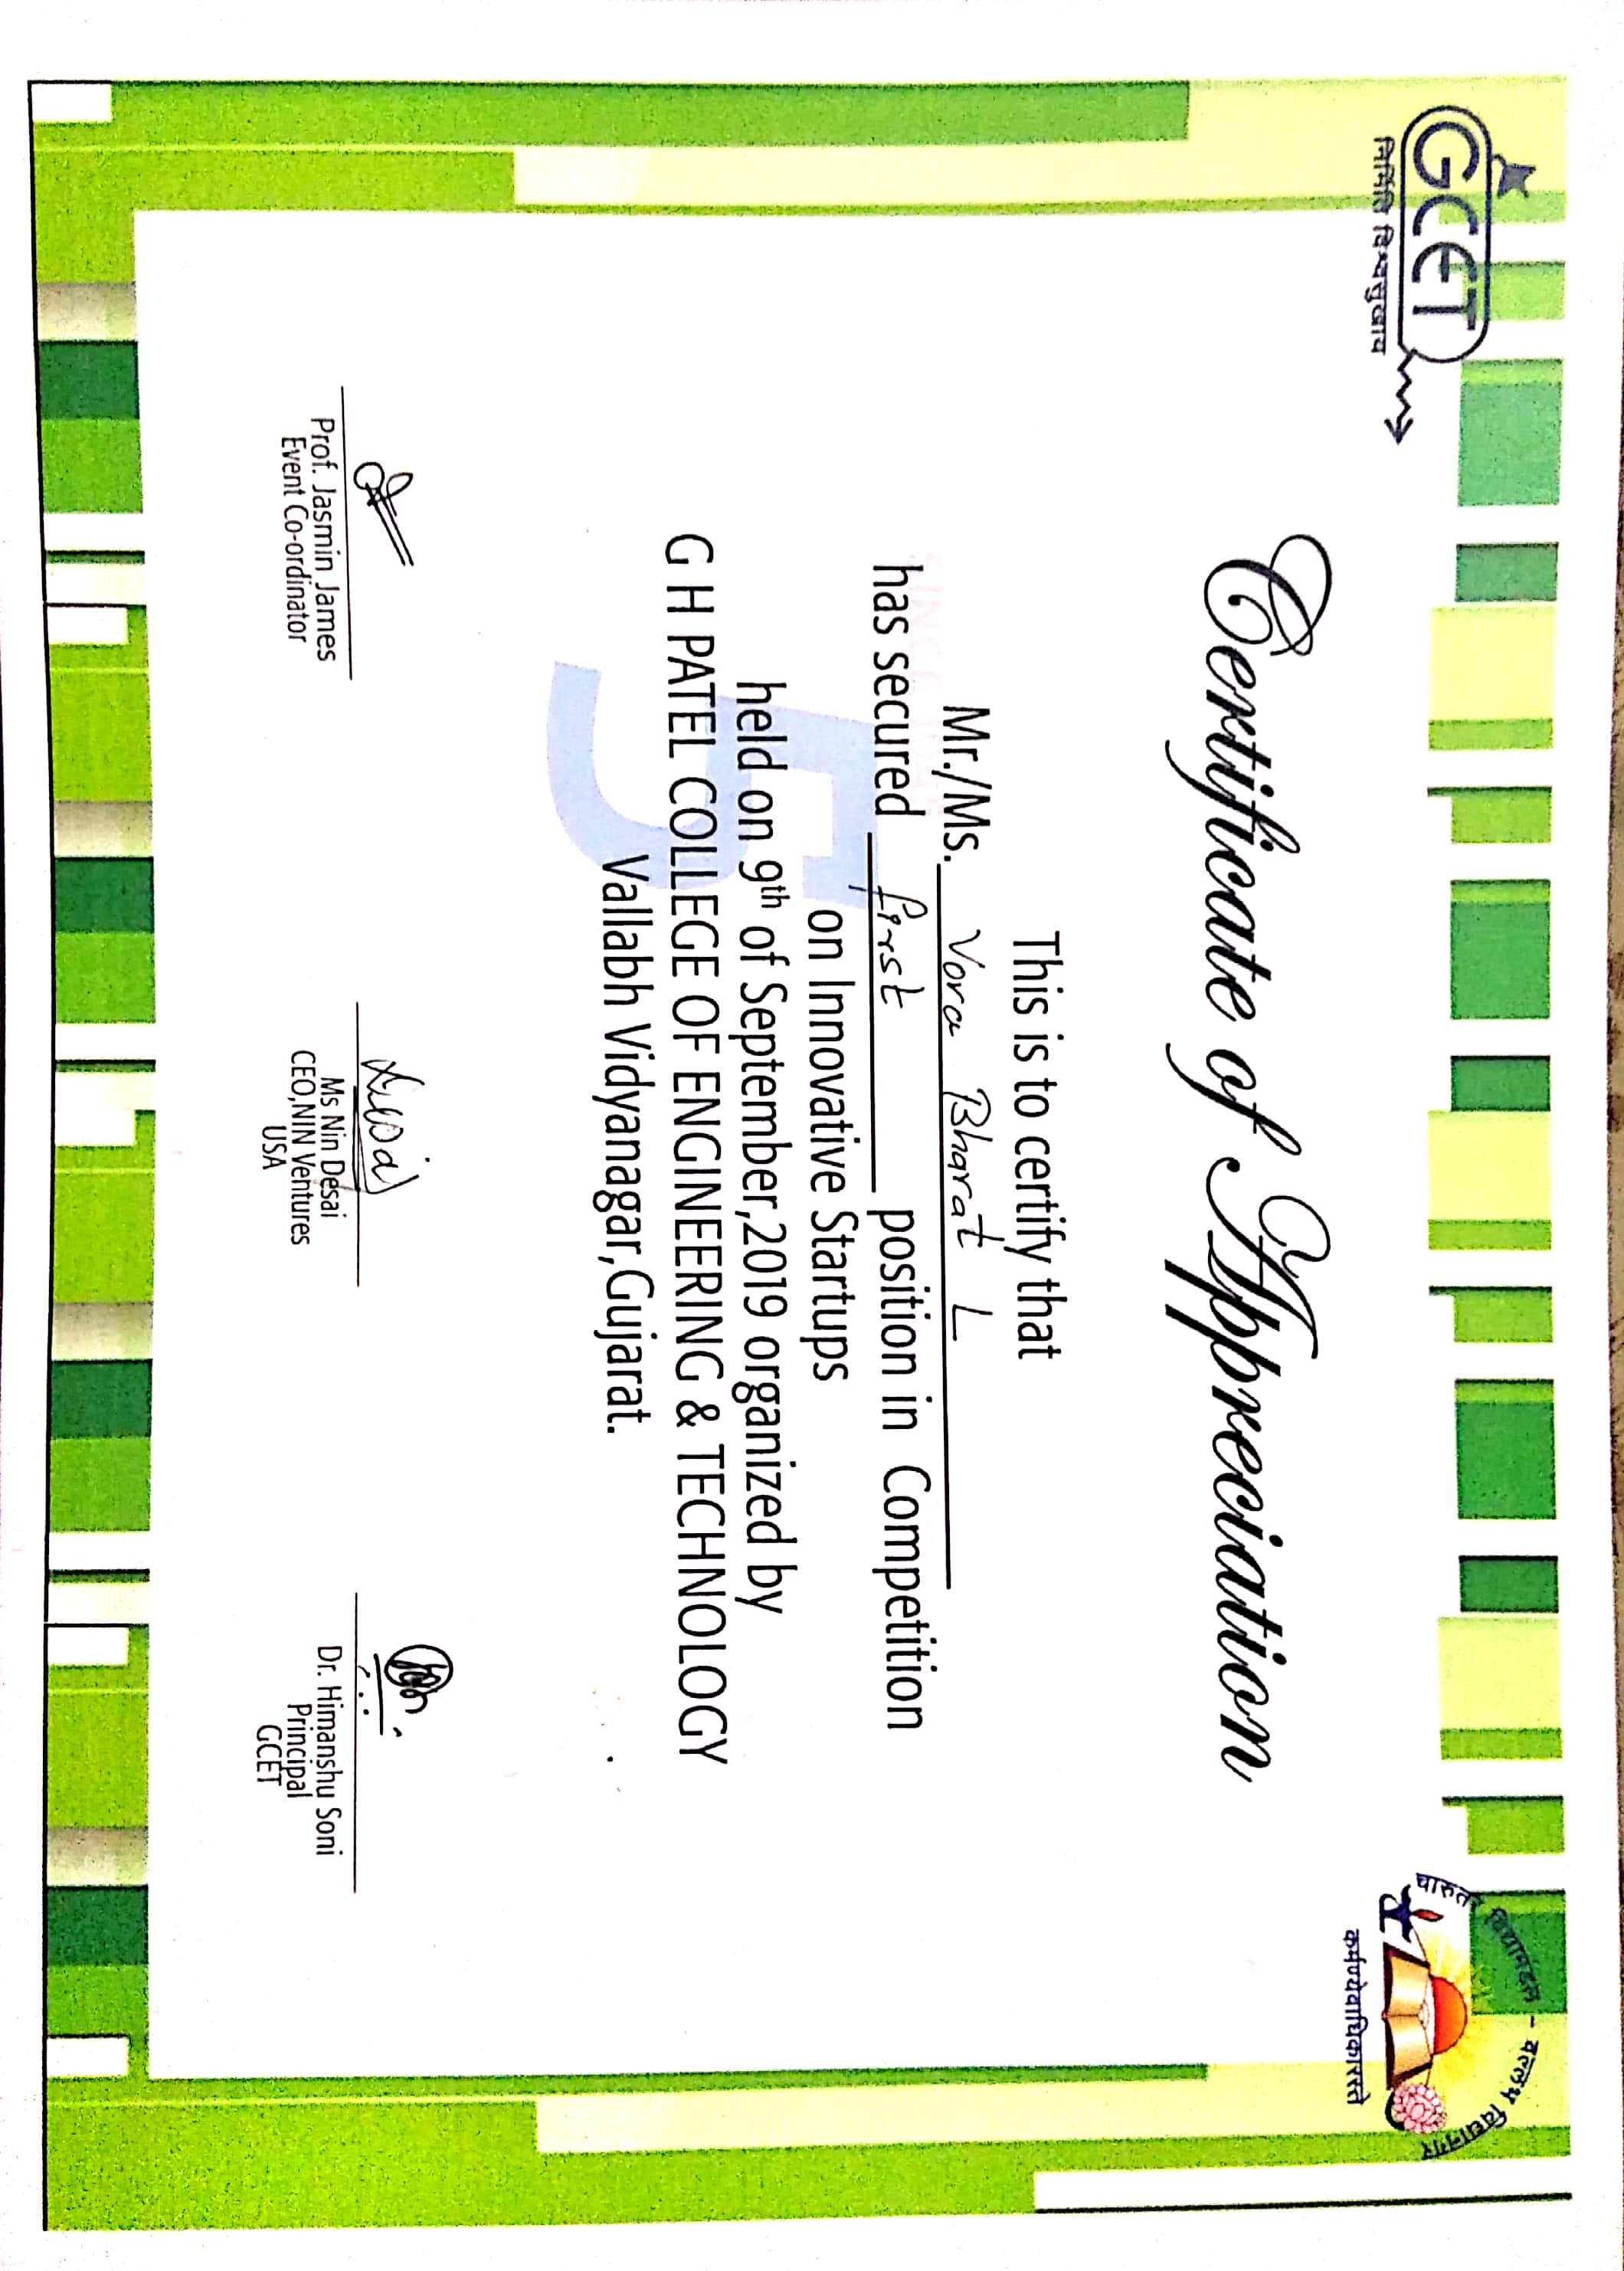 GCET
निर्मिति विश्वसुखाय
चारुतर विद्यामंडल - वल्लभ विद्यानगर
कर्मण्येवाधिकारस्ते
Certificate of Appreciation
This is to certify that
Mr./Ms. Vora Bharat L
SINCE 1945
has secured first position in Competition
on Innovative Startups
held on 9th of September,2019 organized by
G H PATEL COLLEGE OF ENGINEERING & TECHNOLOGY
Vallabh Vidyanagar,Gujarat.
5
Desai
Prof. Jasmin James
Event Co-ordinator
Ms Nin Desai
CEO,NIN Ventures
USA
Dr. Himanshu Soni
Principal
GCET